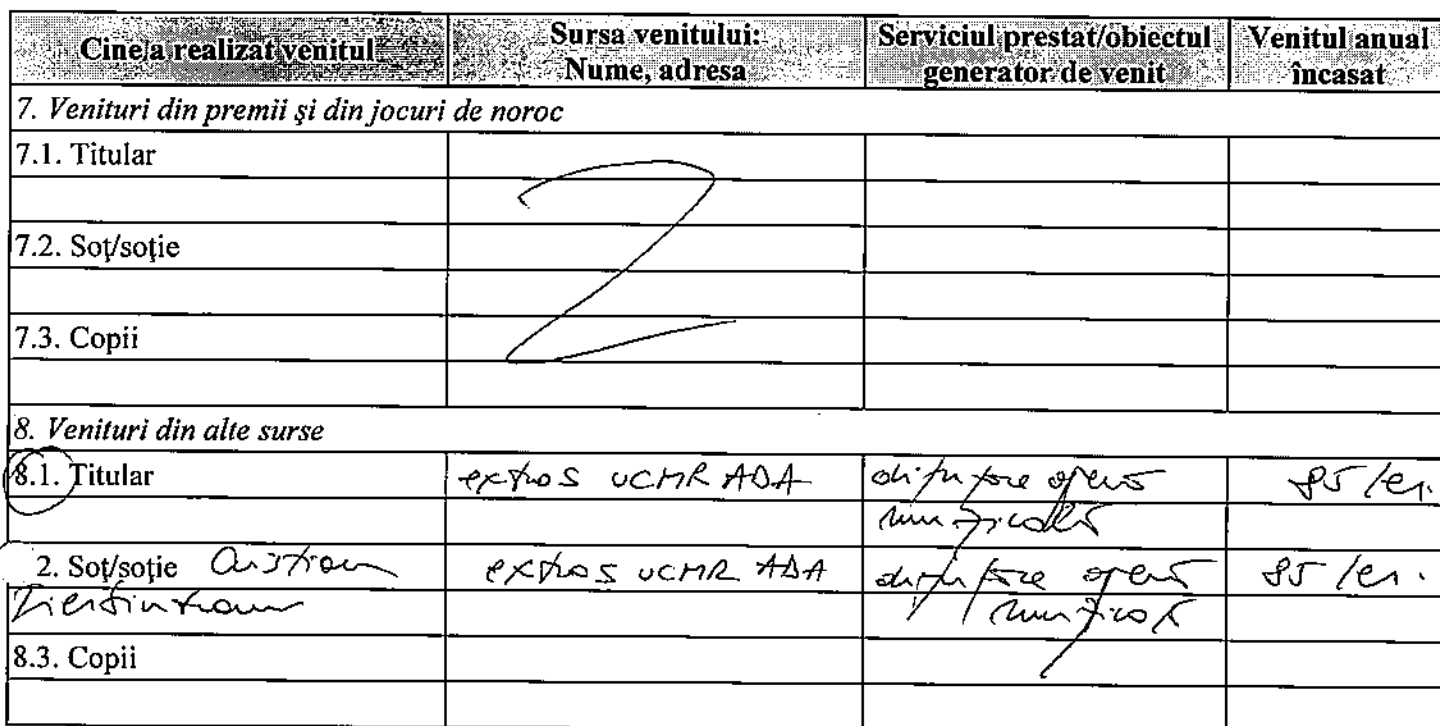 Cine a realizat venitul
Sursa venitului:
Nume, adresa
Serviciul prestat/obiectul
generator de venit
Venitul anual
încasat
7. Venituri din premii şi din jocuri de noroc
7.1. Titular
7.2. Soţ/soţie
7.3. Copii
8. Venituri din alte surse
8.1. Titular
extras UCMR ADA
difuzare operă
muzicală
85 lei.
2. Soţ/soţie Cristian
extras UCMR ADA
difuzare operă
muzicală
85 lei.
8.3. Copii